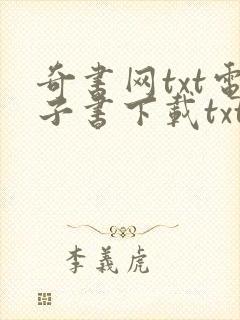 奇書网txt電
子書下載txt
李義虎